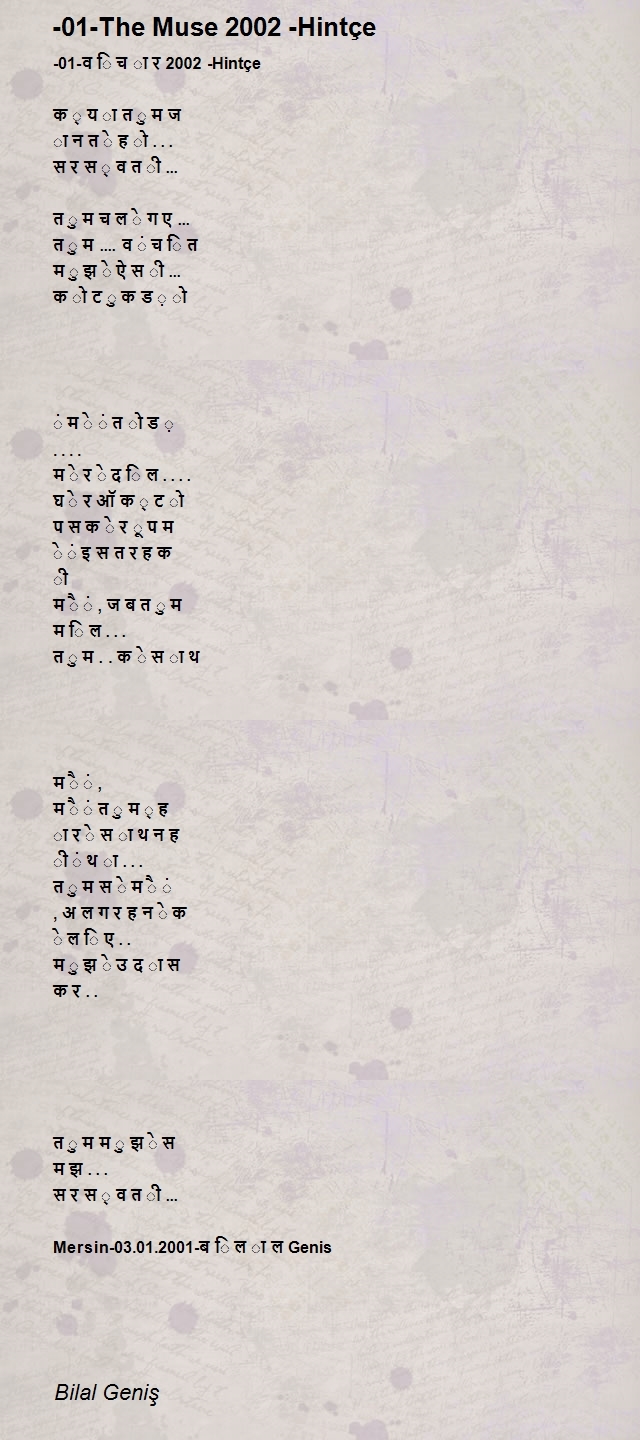 -01-The Muse 2002 -Hintçe
-01-व ि च ा र 2002 -Hintçe
क ् य ा त ु म ज
ा न त े ह ो . . .
स र स ् व त ी ...
त ु म च ल े ग ए ...
त ु म .... व ं च ि त
म ु झ े ऐ स ी ...
क ो ट ु क ड ़ ो
ं म े ं त ो ड ़
. . . .
म े र े द ि ल . . . .
घ े र ऑ क ् ट ो
प स क े र ू प म
े ं इ स त र ह क
ी
म ै ं , ज ब त ु म
म ि ल . . .
त ु म . . क े स ा थ
म ै ं ,
म ै ं त ु म ् ह
ा र े स ा थ न ह
ी ं थ ा . . .
त ु म स े म ै ं
, अ ल ग र ह न े क
े ल ि ए . .
म ु झ े उ द ा स
क र . .
त ु म म ु झ े स
म झ . . .
स र स ् व त ी ...
Mersin-03.01.2001-ब ि ल ा ल Genis
Bilal Geniş